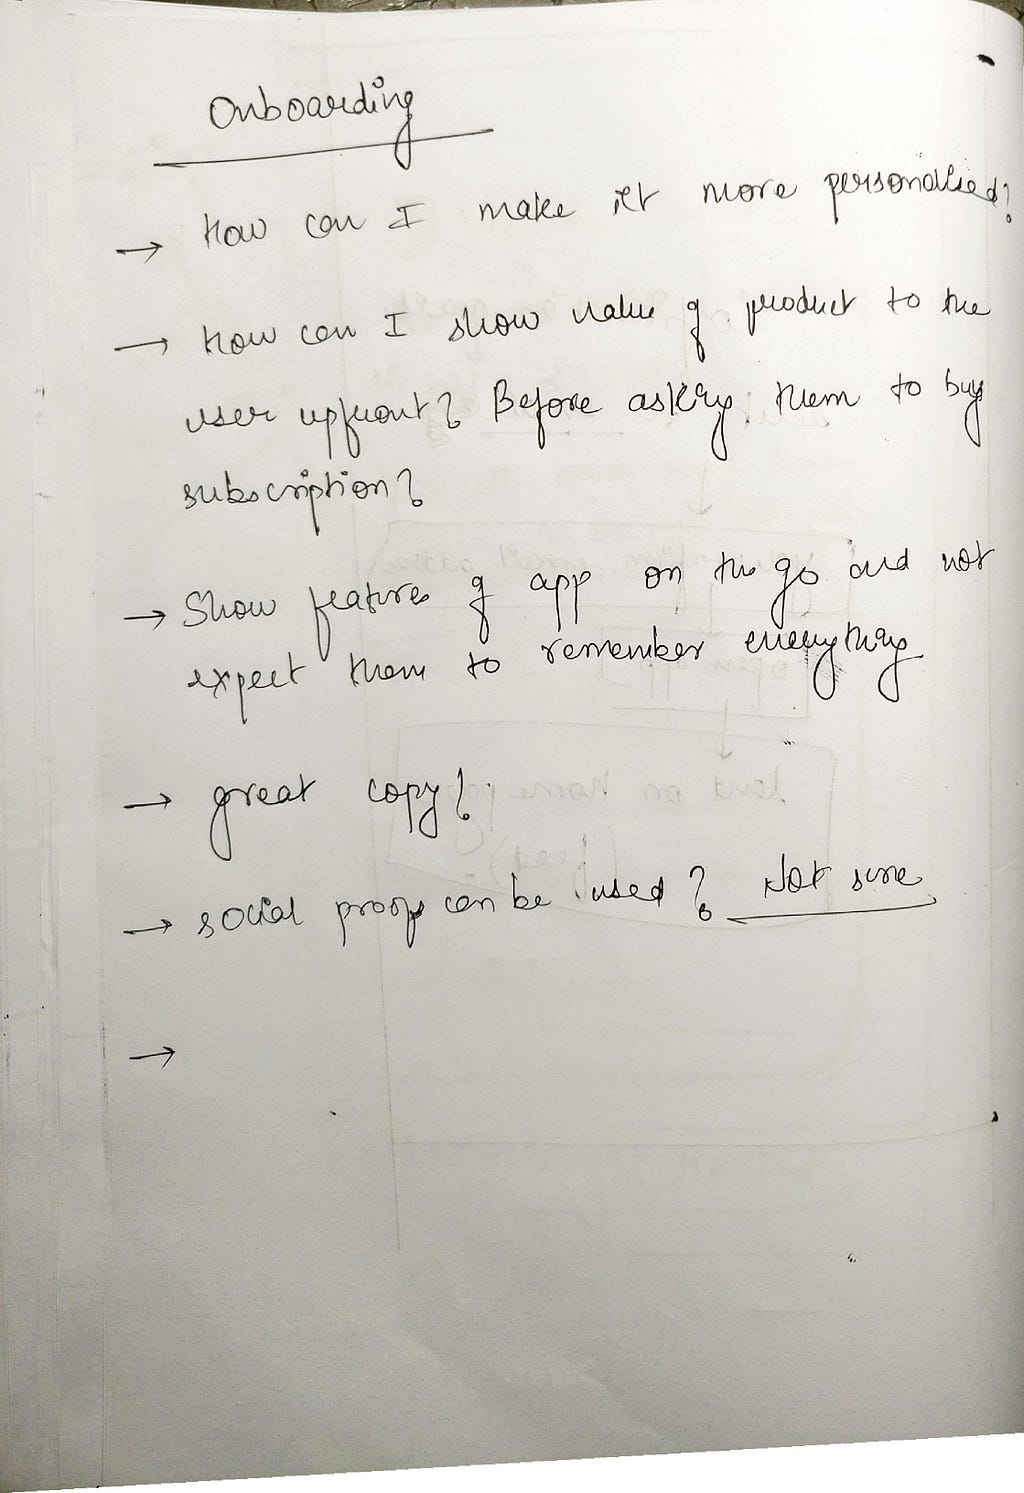 Onboarding
→ How can I make it more personalised?
→ How can I show value of product to the
user upfront? Before asking them to buy
subscription?
→ Show features of app on the go and not
expect them to remember everything
→ great copy?
→ social proof can be used? Not sure
→